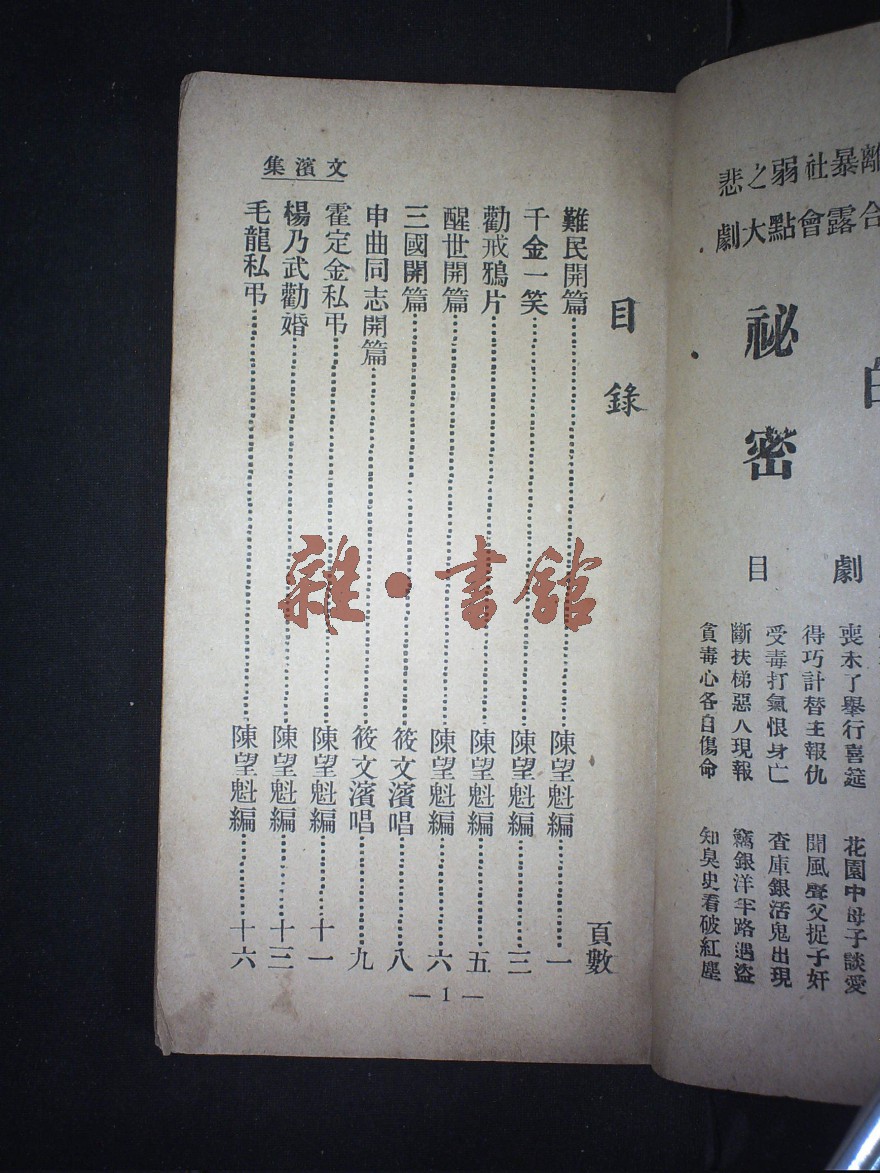 離合暴露社會弱點之大悲劇
祕密
劇目
喪未了舉行喜筵 花園中母子談愛
得巧計替主報仇 聞風聲父捉子奸
受毒打氣恨身亡 查庫銀活鬼出現
斷扶梯惡人現報 竊銀洋半路遇盜
貪毒心各自傷命 知臭史看破紅塵
文濱集
目錄
頁數
難民開篇……陳望魁編……一
千金一笑……陳望魁編……三
勸戒鴉片……陳望魁編……五
醒世開篇……陳望魁編……六
三國開篇……筱文濱唱……八
申曲同志開篇……筱文濱唱……九
霍定金私弔……陳望魁編……十一
楊乃武勸婚……陳望魁編……十三
毛龍私弔……陳望魁編……十六
— 1 —
雜·書館